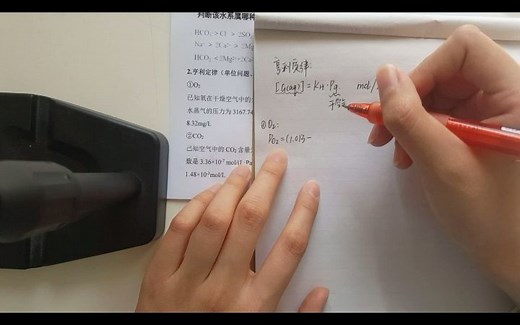 判断该水系属哪种
HCO₃⁻>Cl⁻>2SO₄
Na⁺>2Ca²⁺>2Mg
HCO₃⁻<2Mg²⁺+2Ca²⁺
2.亨利定律（单位问题、
①O₂
已知氧在干燥空气中的
水蒸气的压力为3167.74
8.32mg/L
②CO₂
已知空气中的CO₂含量
数是3.36×10⁻⁷mol/(L·Pa
1.48×10⁻⁵mol/L
亨利定律:
[G(aq)]=KH·Pg. mol/
①O₂:
PO₂=(1.013-